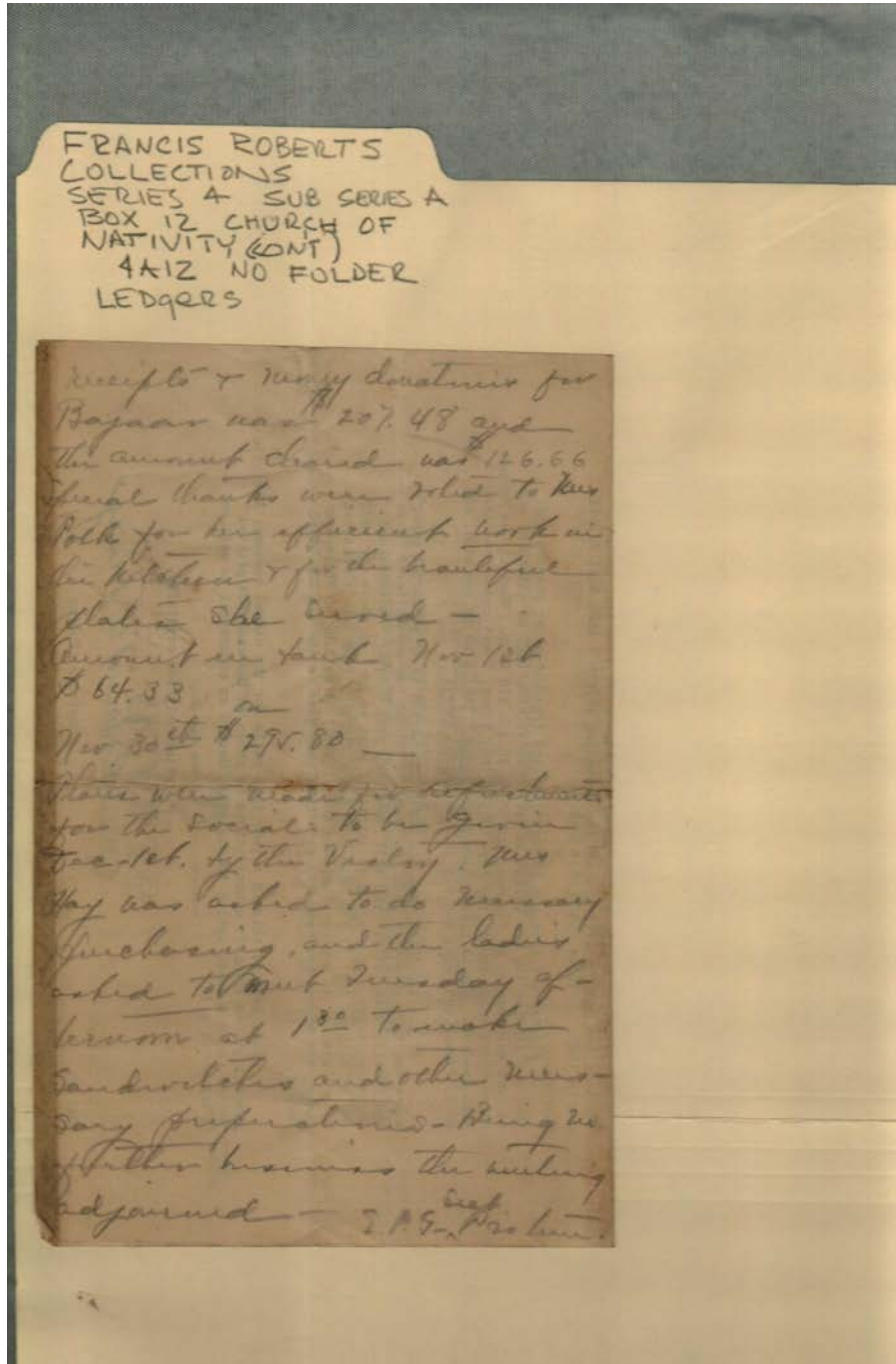 FRANCIS ROBERTS
COLLECTIONS
SERIES 4 SUB SERIES A
BOX 12 CHURCH OF
NATIVITY (CONT)
4A12 NO FOLDER
LEDgERS
receipts & money donations for
Bazaar was $207.48 and
the amount cleared was $126.66
Special thanks were voted to Mrs
Polk for her efficient work in
the kitchen & for the beautiful
plates she served —
Amount in bank Nov 1st
$64.33
on
Nov 30th $295.80 —
Plans were made for refreshments
for the social to be given
Dec-1st. by the Vestry. Mrs
Hay was asked to do necessary
purchasing, and the ladies
asked to meet Tuesday af-
ternoon at 1 30 to make
Sandwitches and other neces-
sary preperations. Being no
further business the meeting
adjourned —
Sect
Pro tem.